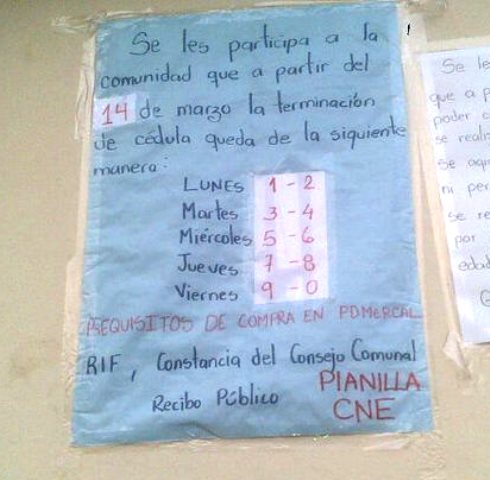 Se les participa a la
comunidad que a partir del
14 de marzo la terminación
de cédula queda de la siguiente
manera:
LUNES 1 - 2
Martes 3 - 4
Miércoles 5 - 6
Jueves 7 - 8
Viernes 9 - 0
REQUISITOS DE COMPRA EN PDMERCAL
RIF, Constancia del Consejo Comunal
Recibo Público
PlANILLA
CNE
Se le
que a p
poder c
se realiz
se aqu
ni per
se re
por
edad